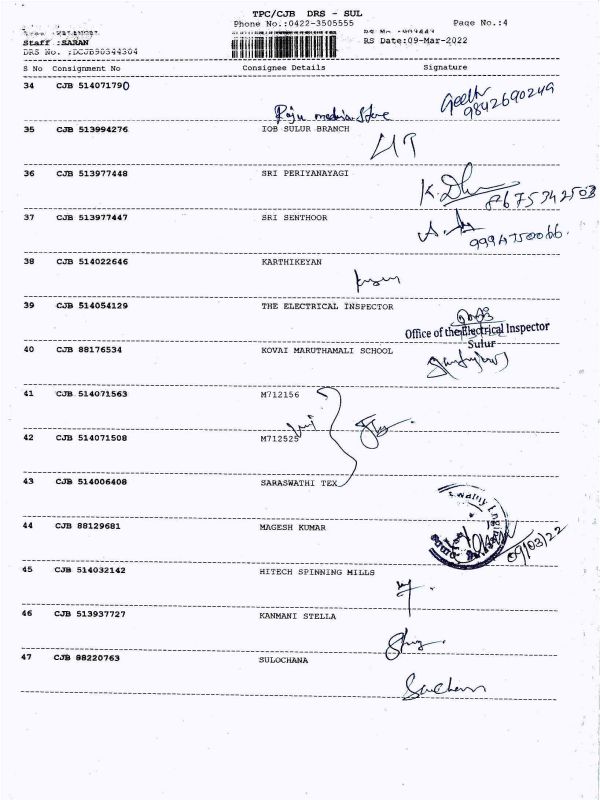 TPC/CJB DRS - SUL
Phone No.:0422-3505555 Page No.:4
Staff :SARAN RS Date:09-Mar-2022
DRS No. :DCJB90344304
S No Consignment No Consignee Details Signature
34 CJB 514071790
Raju media Store Geeth 9842690249
35 CJB 513994276 IOB SULUR BRANCH
36 CJB 513977448 SRI PERIYANAYAGI
K. 8675342503
37 CJB 513977447 SRI SENTHOOR
9994750066.
38 CJB 514022646 KARTHIKEYAN
39 CJB 514054129 THE ELECTRICAL INSPECTOR
Office of the Electrical Inspector
Sulur
40 CJB 88176534 KOVAI MARUTHAMALI SCHOOL
41 CJB 514071563 M712156
42 CJB 514071508 M712525
43 CJB 514006408 SARASWATHI TEX
44 CJB 88129681 MAGESH KUMAR
09/03/22
45 CJB 514032142 HITECH SPINNING MILLS
46 CJB 513937727 KANMANI STELLA
47 CJB 88220763 SULOCHANA